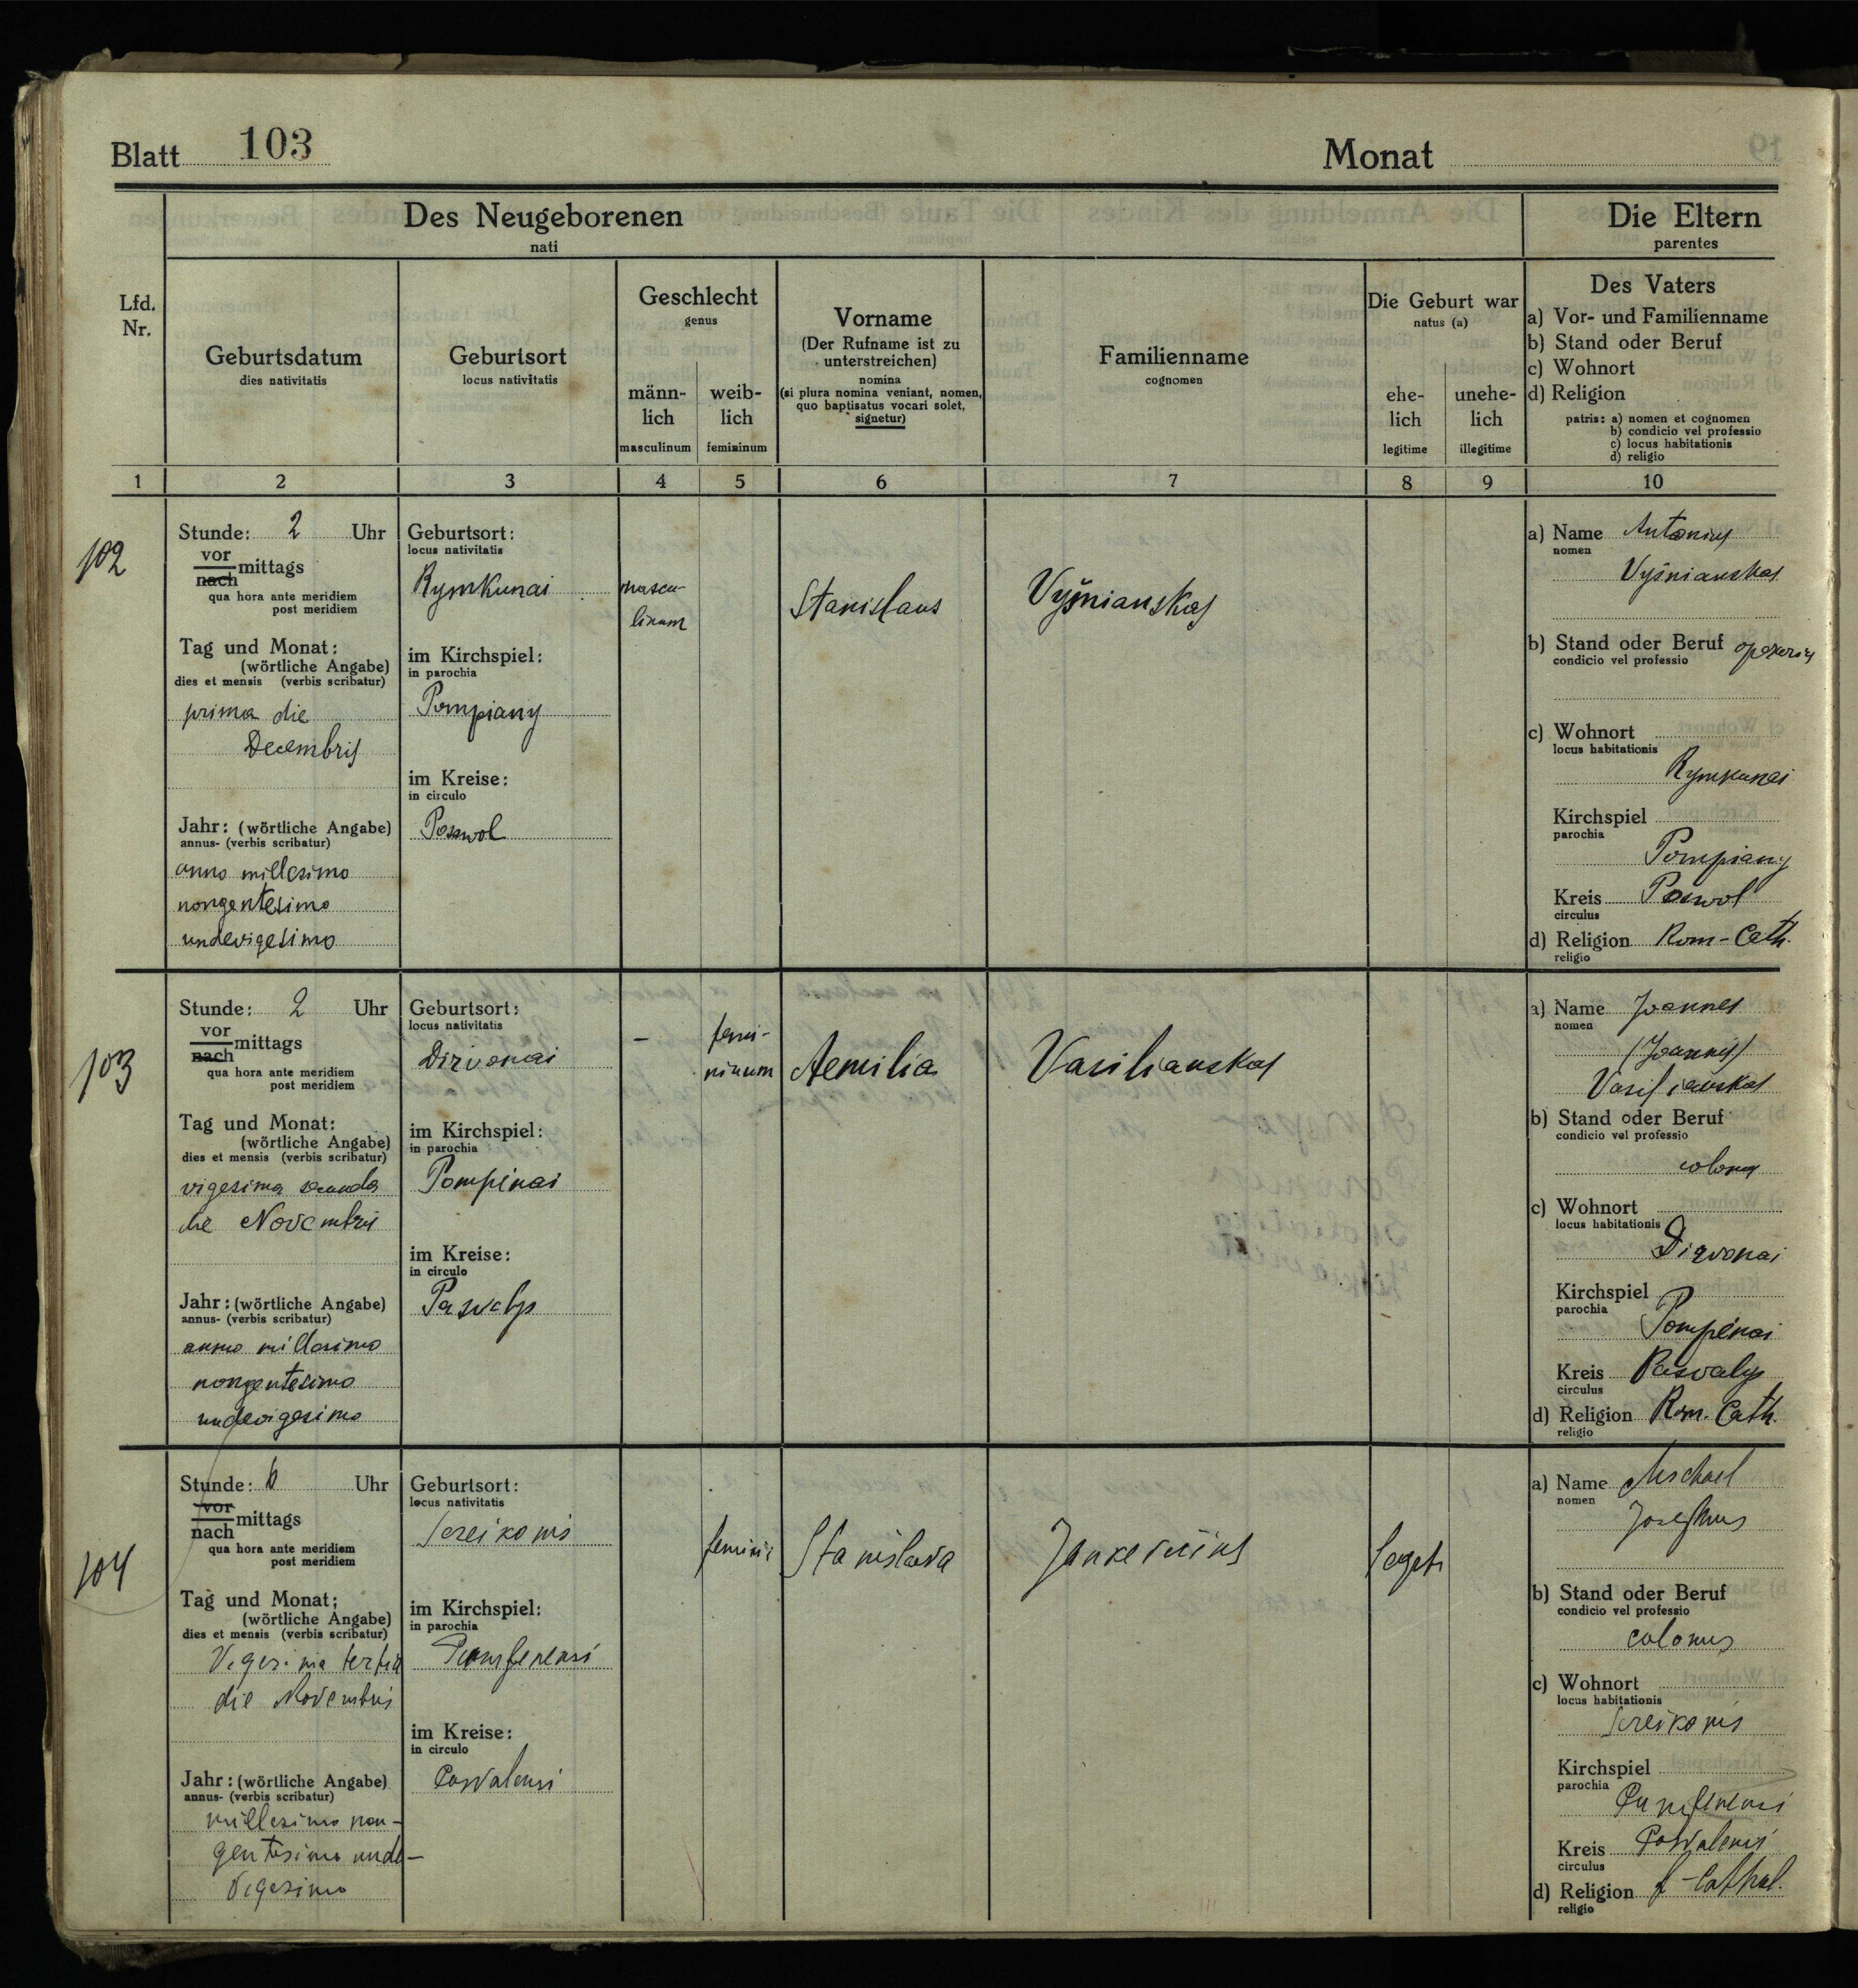 Blatt 103
Monat
Des Neugeborenen
nati
Die Eltern
parentes
Lfd.
Nr.
Geburtsdatum
dies nativitatis
Geburtsort
locus nativitatis
Geschlecht
genus
männ-
lich
masculinum
weib-
lich
femininum
Vorname
(Der Rufname ist zu
unterstreichen)
nomina
(si plura nomina veniant, nomen,
quo baptisatus vocari solet,
signetur)
Familienname
cognomen
Die Geburt war
natus (a)
ehe-
lich
legitime
unehe-
lich
illegitime
Des Vaters
a) Vor- und Familienname
b) Stand oder Beruf
c) Wohnort
d) Religion
patris: a) nomen et cognomen
b) condicio vel professio
c) locus habitationis
d) religio
1 2 3 4 5 6 7 8 9 10
102
Stunde: 2 Uhr
vor
nach mittags
qua hora ante meridiem
post meridiem
Tag und Monat:
(wörtliche Angabe)
dies et mensis (verbis scribatur)
prima die
Decembris
Jahr: (wörtliche Angabe)
annus- (verbis scribatur)
anno millesimo
nongentesimo
undevigesimo
Geburtsort:
locus nativitatis
Rymkunai
im Kirchspiel:
in parochia
Pompiany
im Kreise:
in circulo
Poswol
mascu-
linum
Stanislaus
Vyšnianskas
a) Name Antonius
nomen
Vyšnianskas
b) Stand oder Beruf operarius
condicio vel professio
c) Wohnort
locus habitationis
Rymkunai
Kirchspiel
parochia
Pompiany
Kreis Poswol
circulus
d) Religion Rom-Cath.
religio
103
Stunde: 2 Uhr
vor
nach mittags
qua hora ante meridiem
post meridiem
Tag und Monat:
(wörtliche Angabe)
dies et mensis (verbis scribatur)
vigesima secunda
die Novembris
Jahr: (wörtliche Angabe)
annus- (verbis scribatur)
anno millesimo
nongentesimo
undevigesimo
Geburtsort:
locus nativitatis
Dirvonai
im Kirchspiel:
in parochia
Pompėnai
im Kreise:
in circulo
Pasvalys
-
femi-
ninum
Aemilia
Vasilianskas
a) Name Joannes
nomen
(Joannis)
Vasilianskas
b) Stand oder Beruf
condicio vel professio
colonus
c) Wohnort
locus habitationis
Dirvonai
Kirchspiel
parochia
Pompėnai
Kreis Pasvalys
circulus
d) Religion Rom. Cath.
religio
104
Stunde: 6 Uhr
vor
nach mittags
qua hora ante meridiem
post meridiem
Tag und Monat:
(wörtliche Angabe)
dies et mensis (verbis scribatur)
Vigesima tertia
die Novembris
Jahr: (wörtliche Angabe)
annus- (verbis scribatur)
millesimo non-
gentesimo unde-
vigesimo
Geburtsort:
locus nativitatis
im Kirchspiel:
in parochia
im Kreise:
in circulo
Posvalensi
Stanislava
Jankevičius
a) Name Mischael
nomen
Josephus
b) Stand oder Beruf
condicio vel professio
colonus
c) Wohnort
locus habitationis
Kirchspiel
parochia
Kreis Posvalensi
circulus
d) Religion
religio